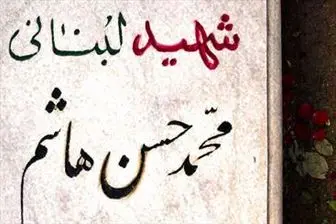 شهید لبنانی
محمد حسن هاشم